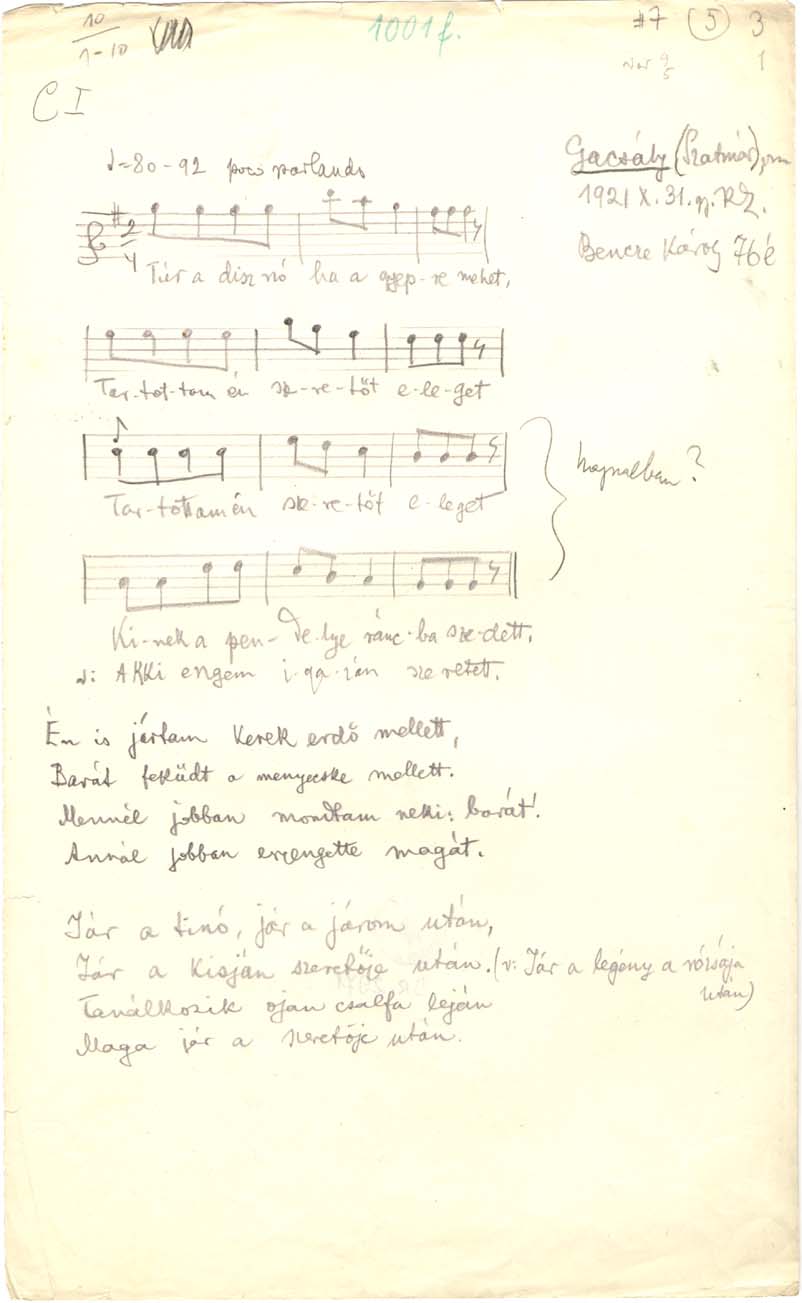 10
1-10
1001 f.
#7 (5) 3
var 9/5
1
C I
♩=80-92 poco parlando
Gacsály (Szatmár),
1921 X. 31. gy. RZ.
Bencze Károly 76 é
2/4
Túr a disz nó ha a gyep-re mehet,
Tar-tot-tam én sze-re-tőt e-le-get
Tar-tottam én sze-re-tőt e-leget
hajnalban?
Ki-nek a pen-de-lye ránc-ba sze-dett.
v: AKKi engem i-ga-zán sze retett.
Én is jártam Kerek erdő mellett,
Barát feküdt a menyecske mellett.
Mennél jobban mondtam neki: barát!
Annál jobban erjengette magát.
Jár a tinó, jár a járom után,
Jár a Kisján szeretője után. (v: Jár a legény a rózsája
után)
Tanálkozik ojan csalfa leján
Maga jár a szeretője után.